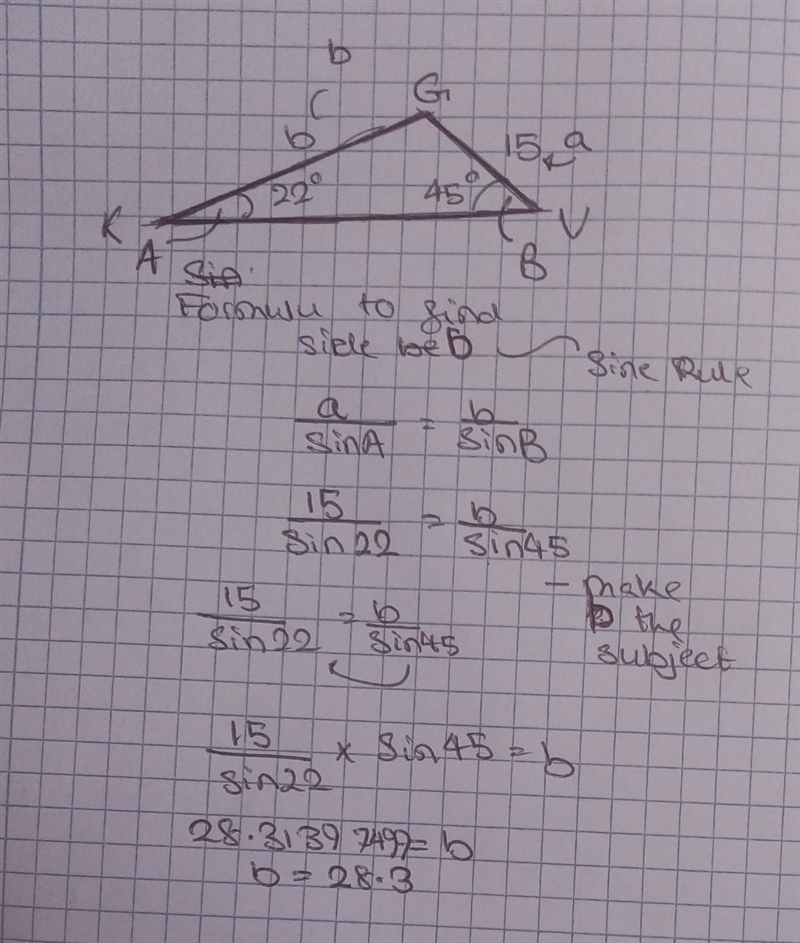 b
C G
b 15 a
22° 45°
K V
A B
Sin
Formulu to find
side be b Sine Rule
a/sinA = b/sinB
15/sin22 = b/sin45
- make
b the
subject
15/sin22 = b/sin45
15/sin22 × sin45 = b
28.31397499 = b
b = 28.3